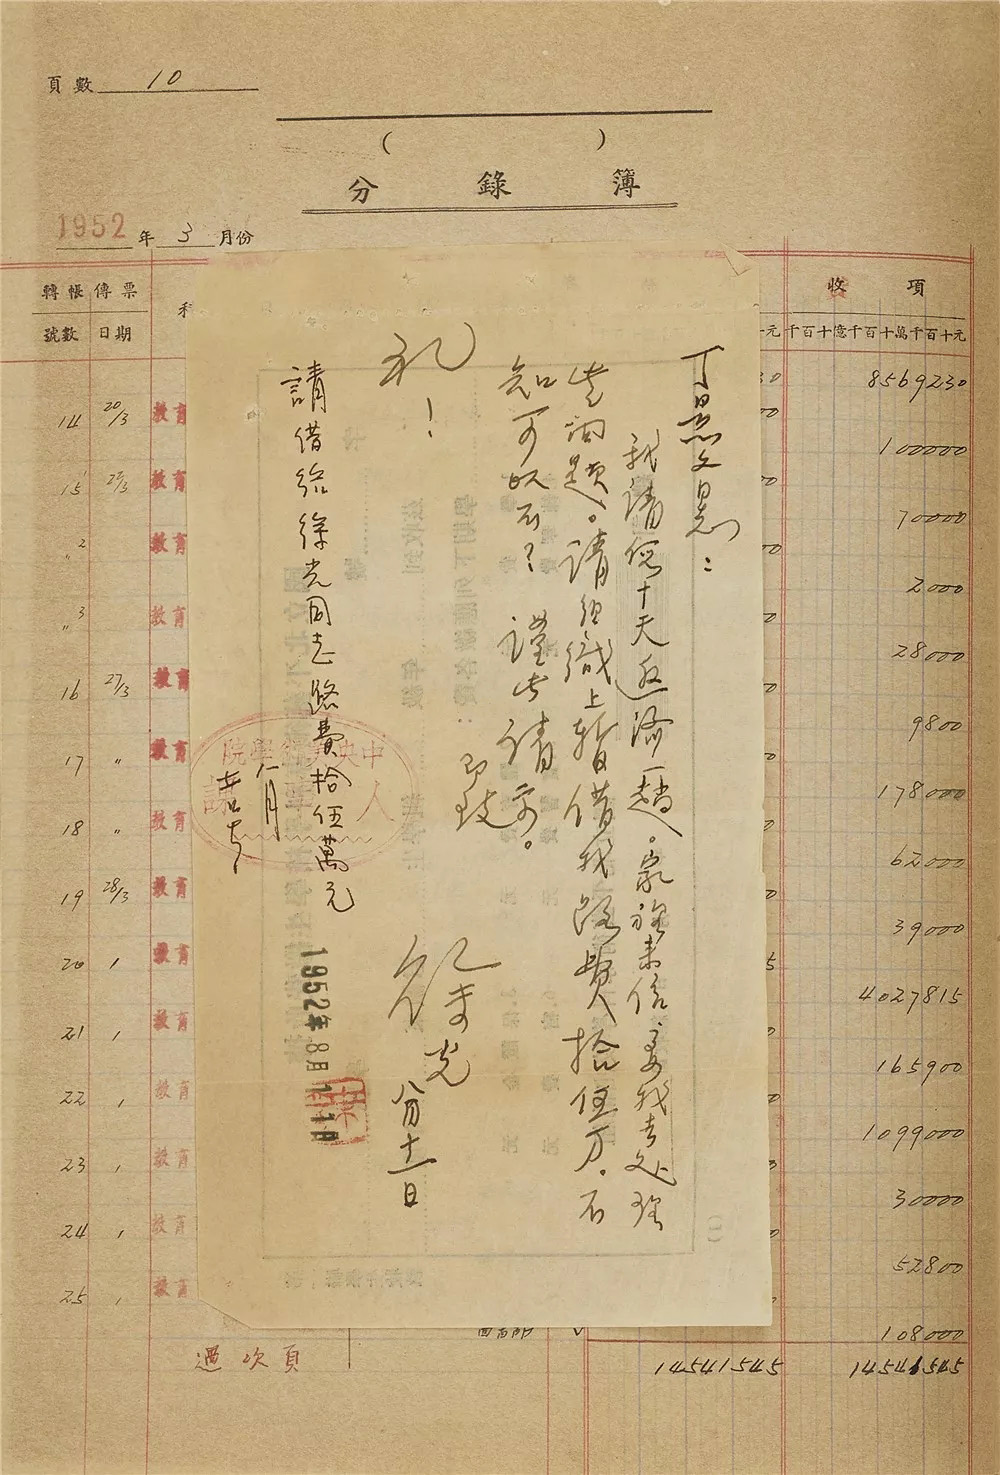 頁數 10
( )
分錄簿
1952年3月份
轉帳傳票
號數 日期
收項
千百十億千百十萬千百十元
丁景文同志：
我請假十天返濟一趟。家裡來信要我去处理
些問題。請組織上暫借我路費拾伍万。不
知可以否？謹此請示。
即致
礼！
徐光
八月十一日
請借給徐光同志路費拾伍萬元
八月
1952年8月11日
中央美術學院
人事
14 20/3 教育
15 27/3 教育
〃2 教育
〃3 教育
16 27/3 教育
17 〃 教育
18 〃 教育
19 28/3 教育
20 教育
21 教育
22 教育
23 教育
24 教育
25 教育
8569230
100000
70000
2000
28000
9800
178000
62000
39000
4027815
165900
1099000
30000
52800
108000
過次頁
14541545 14541545